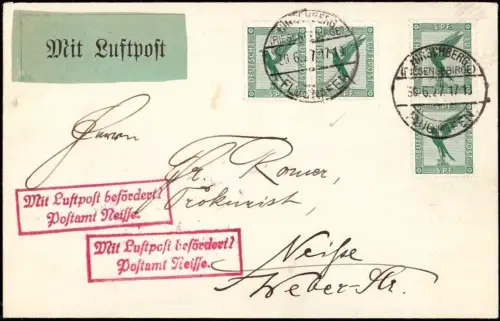 Mit Luftpost
HIRSCHBERG
(RIESENGEBIRGE)
FLUGHAFEN
DEUTSCHE LUFTPOST
5 PF
HIRSCHBERG
(RIESENGEBIRGE)
30.6.27.17-18
FLUGHAFEN
5 PF
Herrn
Fr. Romer,
Prokurist
Mit Luftpost befördert!
Postamt Neisse.
Mit Luftpost befördert!
Postamt Neisse.
Neiße
Weber-Str.